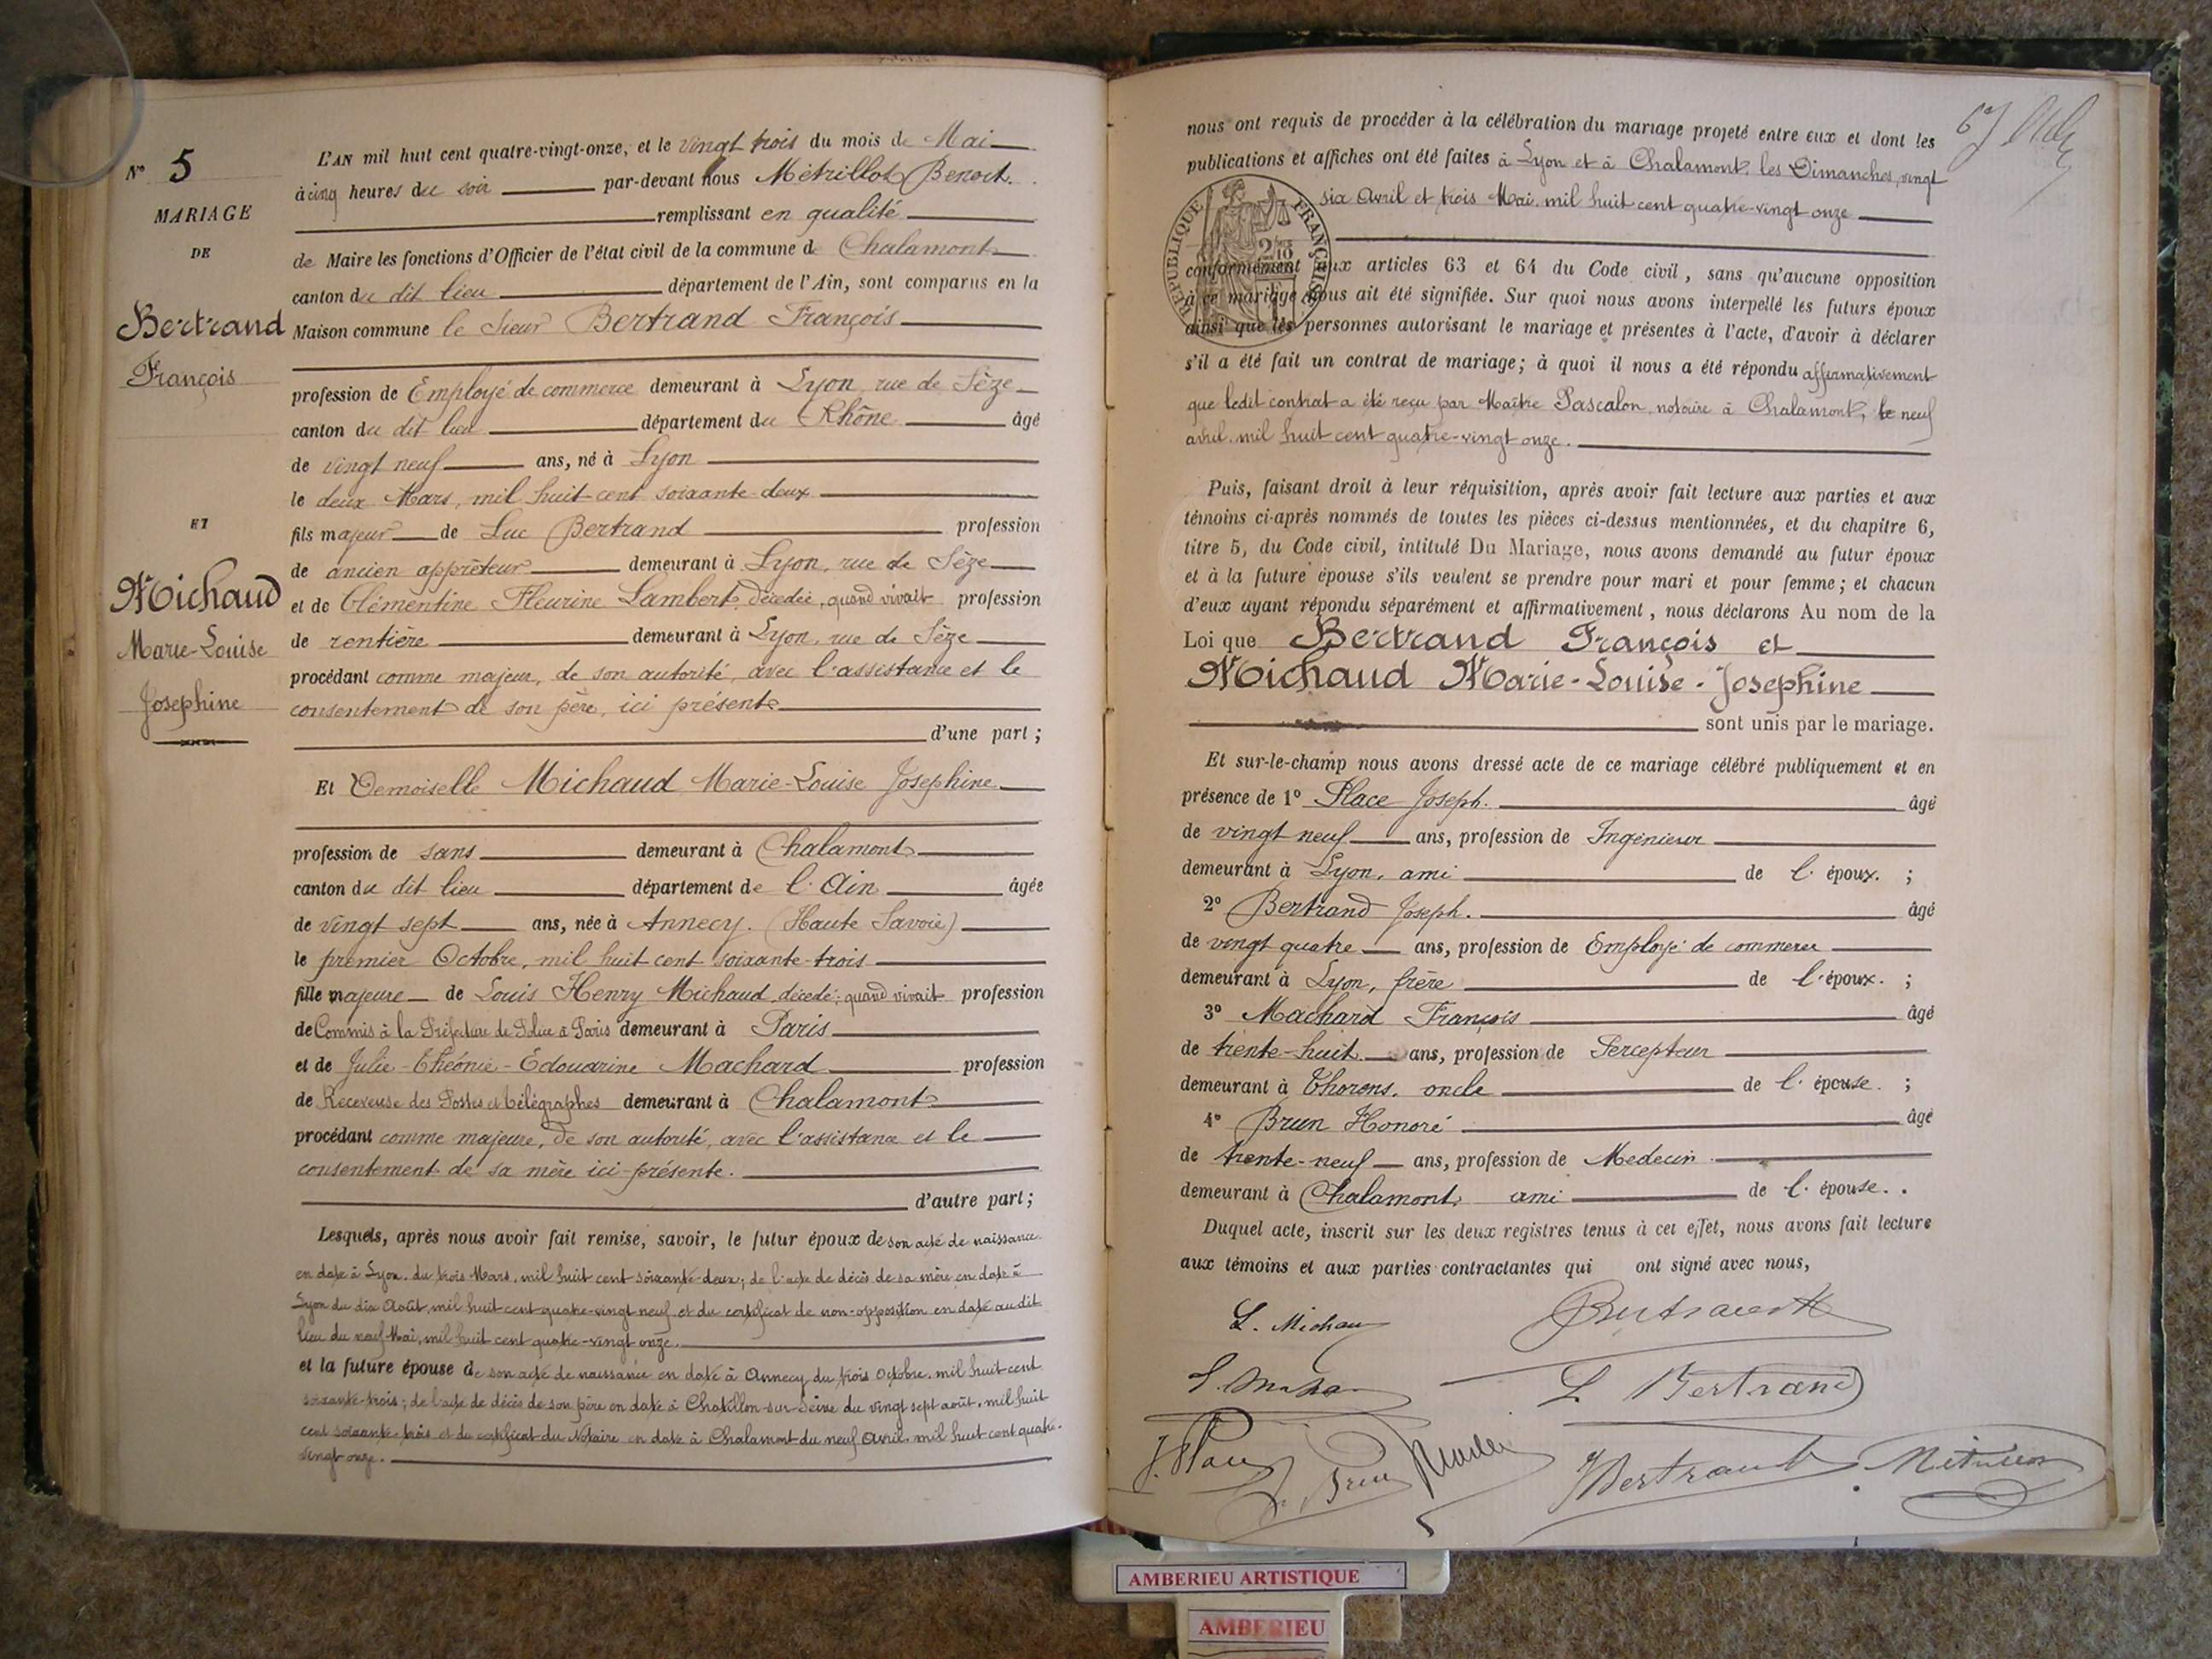 N° 5
MARIAGE
DE
Bertrand
François
ET
Michaud
Marie-Louise
Josephine
L'AN mil huit cent quatre-vingt-onze, et le vingt trois du mois de Mai
à cinq heures du soir par-devant nous Métrillot Benoit.
remplissant en qualité
de Maire les fonctions d'Officier de l'état civil de la commune de Chalamont
canton du dit lieu département de l'Ain, sont comparus en la
Maison commune le Sieur Bertrand François
profession de Employé de commerce demeurant à Lyon, rue de Sèze
canton du dit lieu département du Rhône âgé
de vingt neuf ans, né à Lyon
le deux Mars, mil huit cent soixante-deux
fils majeur de Luc Bertrand profession
de ancien apprêteur demeurant à Lyon, rue de Sèze
et de Clémentine Fleurine Lambert, décedée, quand vivait profession
de rentière demeurant à Lyon, rue de Sèze
procédant comme majeur, de son autorité, avec l'assistance et le
consentement de son père, ici présent
d'une part ;
Et Demoiselle Michaud Marie-Louise Josephine
profession de sans demeurant à Chalamont
canton du dit lieu département de l'Ain âgée
de vingt sept ans, née à Annecy. (Haute Savoie)
le premier Octobre, mil huit cent soixante-trois
fille majeure de Louis Henry Michaud, décedé; quand vivait profession
de Commis à la Préfecture de Police à Paris demeurant à Paris
et de Julie-Théonie-Edouarine Machard profession
de Receveuse des Postes et télégraphes demeurant à Chalamont
procédant comme majeure, de son autorité, avec l'assistance et le
consentement de sa mère ici-présente.
d'autre part ;
Lesquels, après nous avoir fait remise, savoir, le futur époux de son acte de naissance
en date à Lyon, du trois Mars, mil huit cent soixante-deux; de l'acte de décès de sa mère en date à
Lyon du dix Août, mil huit cent quatre-vingt neuf et du certificat de non-opposition en date au dit
lieu du neuf Mai, mil huit cent quatre-vingt onze.
et la future épouse de son acte de naissance en date à Annecy du trois Octobre, mil huit cent
soixante-trois; de l'acte de décès de son père en date à Chatillon-sur-Seine du vingt sept août, mil huit
cent soixante-trois et du certificat du Notaire en date à Chalamont du neuf Avril, mil huit cent quatre-
vingt onze.
nous ont requis de procéder à la célébration du mariage projeté entre eux et dont les
publications et affiches ont été faites à Lyon et à Chalamont, les Dimanches, vingt
six Avril et trois Mai, mil huit cent quatre-vingt onze
RÉPUBLIQUE FRANÇAISE
conformément aux articles 63 et 64 du Code civil, sans qu'aucune opposition
à ce mariage nous ait été signifiée. Sur quoi nous avons interpellé les futurs époux
ainsi que les personnes autorisant le mariage et présentes à l'acte, d'avoir à déclarer
s'il a été fait un contrat de mariage; à quoi il nous a été répondu affirmativement
que ledit contrat a été reçu par Maître Pascalon, notaire à Chalamont, le neuf
avril, mil huit cent quatre-vingt onze.
Puis, faisant droit à leur réquisition, après avoir fait lecture aux parties et aux
témoins ci-après nommés de toutes les pièces ci-dessus mentionnées, et du chapitre 6,
titre 5, du Code civil, intitulé Du Mariage, nous avons demandé au futur époux
et à la future épouse s'ils veulent se prendre pour mari et pour femme; et chacun
d'eux ayant répondu séparément et affirmativement, nous déclarons Au nom de la
Loi que Bertrand François et
Michaud Marie-Louise-Josephine
sont unis par le mariage.
Et sur-le-champ nous avons dressé acte de ce mariage célébré publiquement et en
présence de 1° Place Joseph. âgé
de vingt neuf ans, profession de Ingénieur
demeurant à Lyon, ami de l'époux. ;
2° Bertrand Joseph. âgé
de vingt quatre ans, profession de Employé de commerce
demeurant à Lyon, frère de l'époux. ;
3° Machard François âgé
de trente-huit ans, profession de Percepteur
demeurant à Thorens, oncle de l'épouse. ;
4° Brun Honoré âgé
de trente-neuf ans, profession de Medecin.
demeurant à Chalamont, ami de l'épouse. .
Duquel acte, inscrit sur les deux registres tenus à cet effet, nous avons fait lecture
aux témoins et aux parties contractantes qui ont signé avec nous,
L. Michau Bertrand
L. Bertrand
J. Place Brun Bertrand
AMBERIEU ARTISTIQUE
AMBERIEU